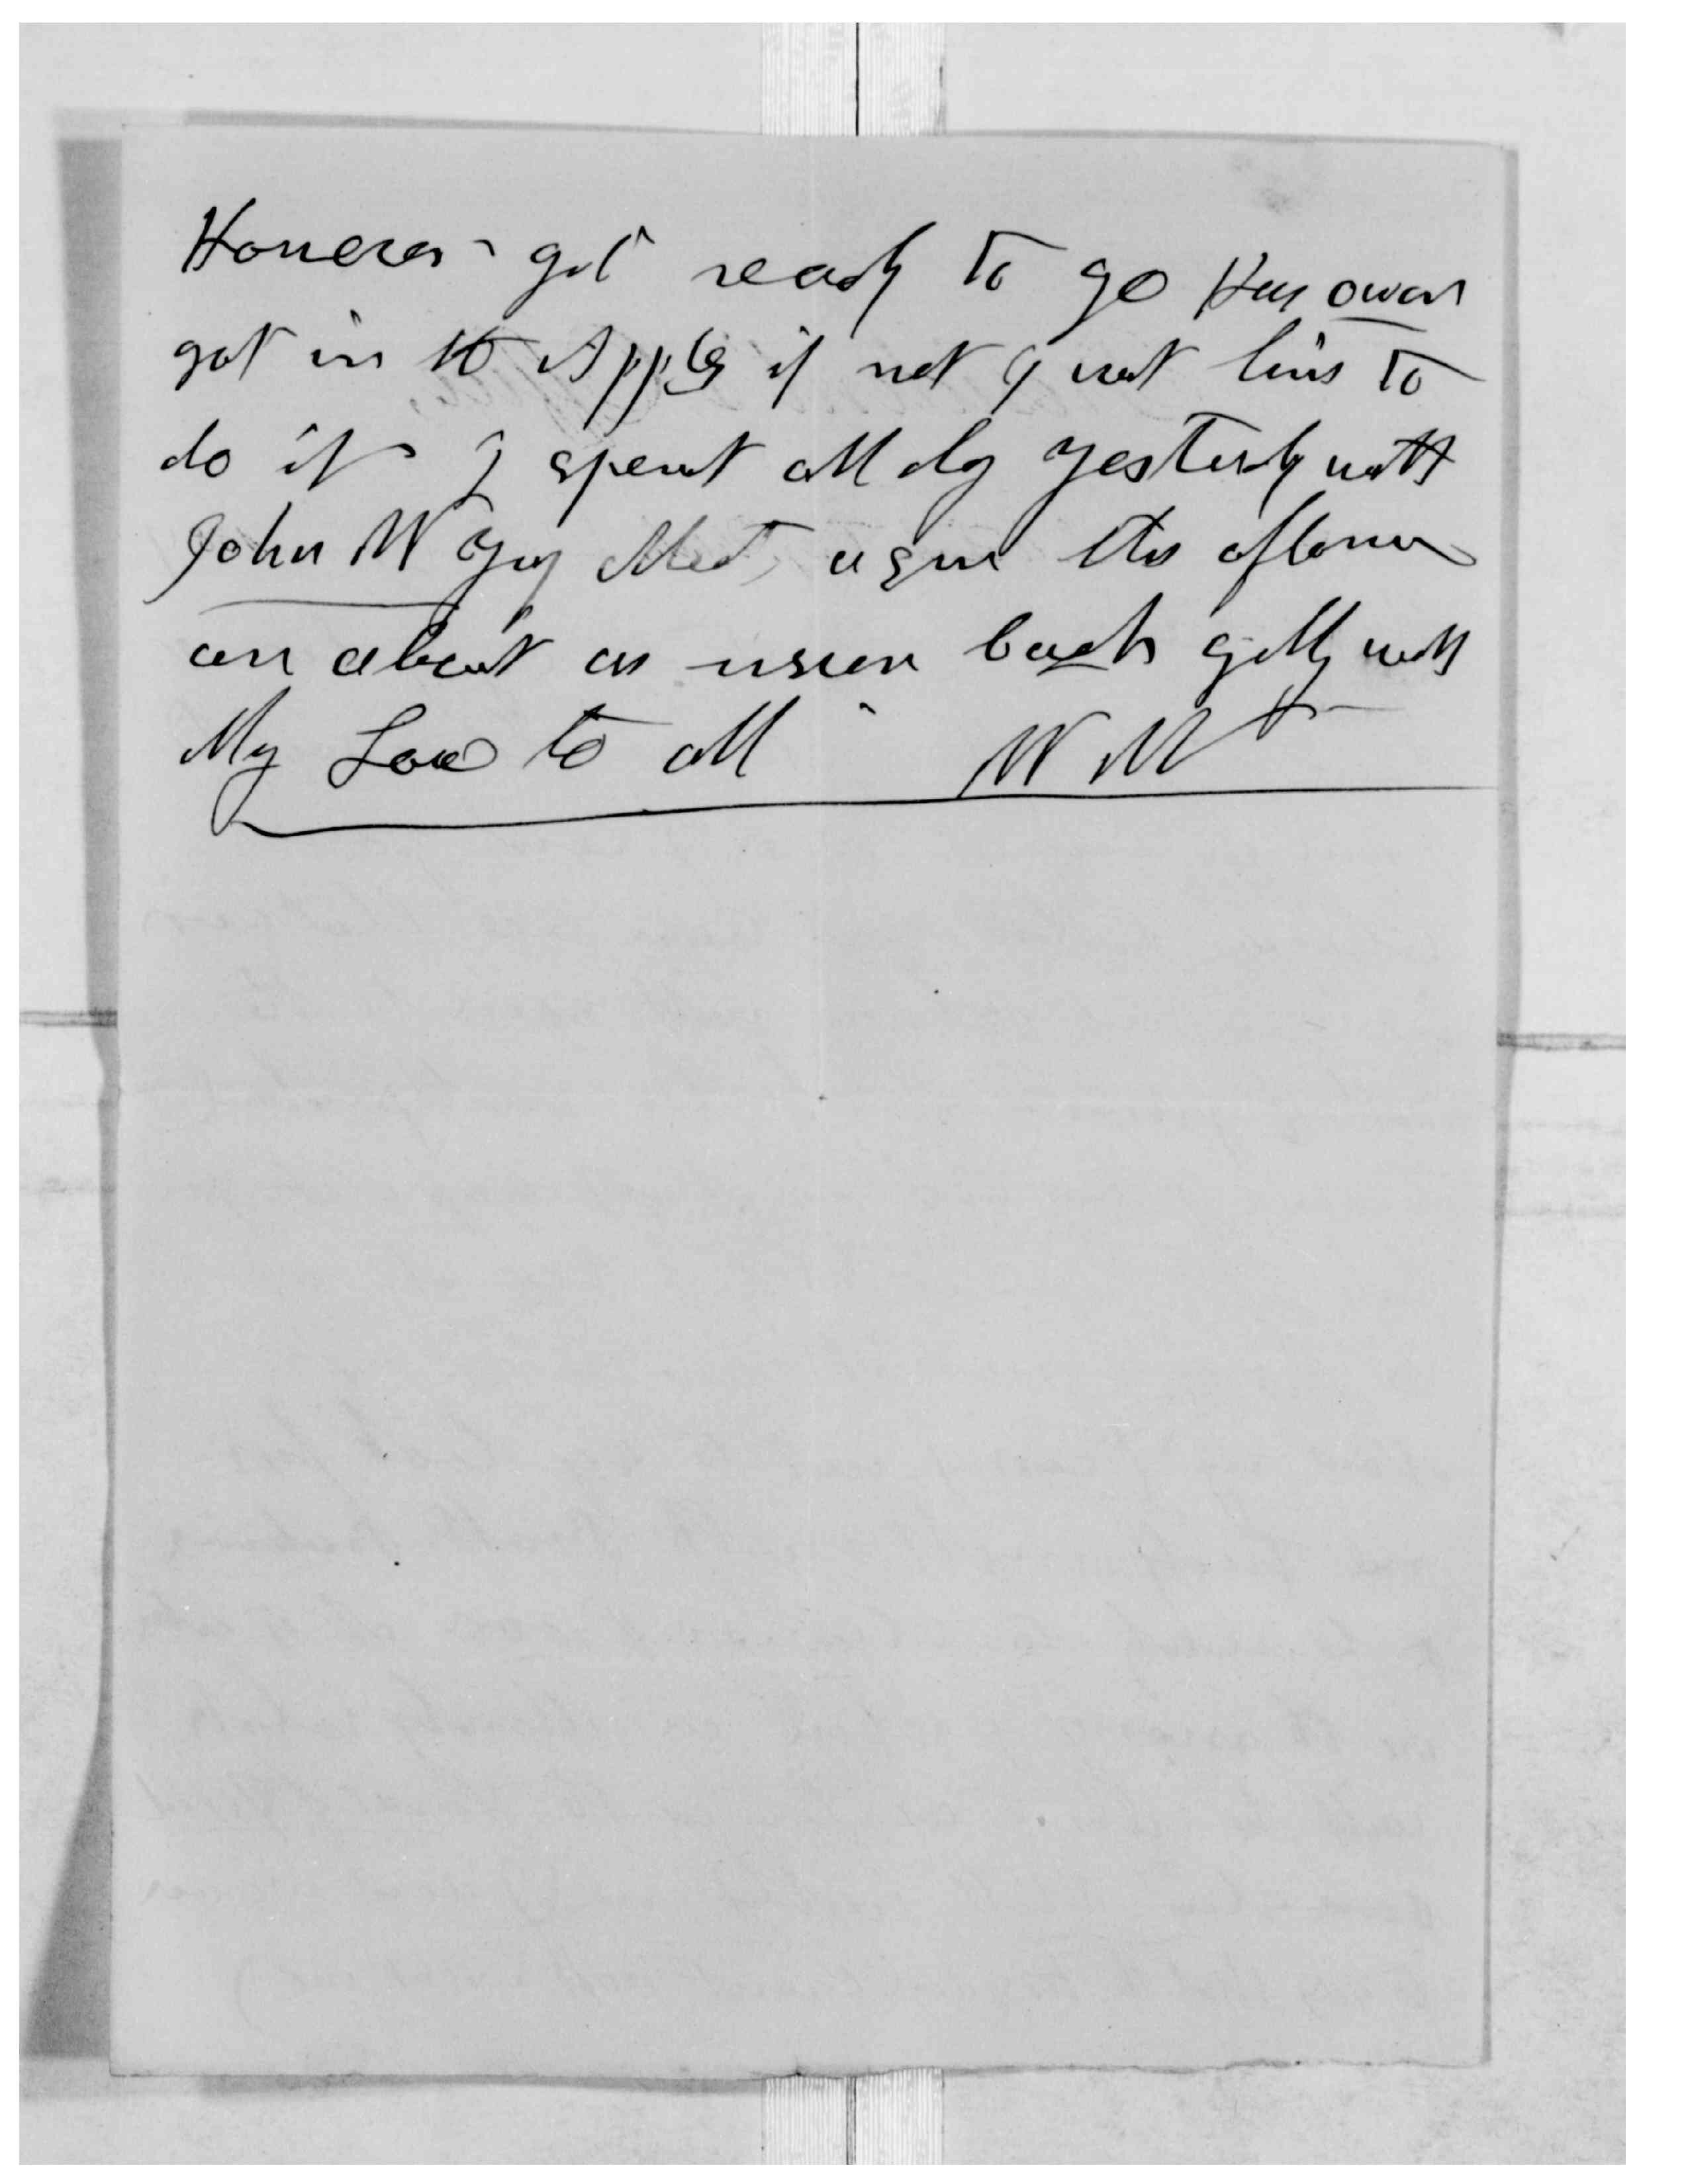 However - get ready to go Has owen
got in the Apples if not get him to
do it - I spent all day yesterday with
John W Meet again this afternoon
am about as usual back getting well
My Love to all W M